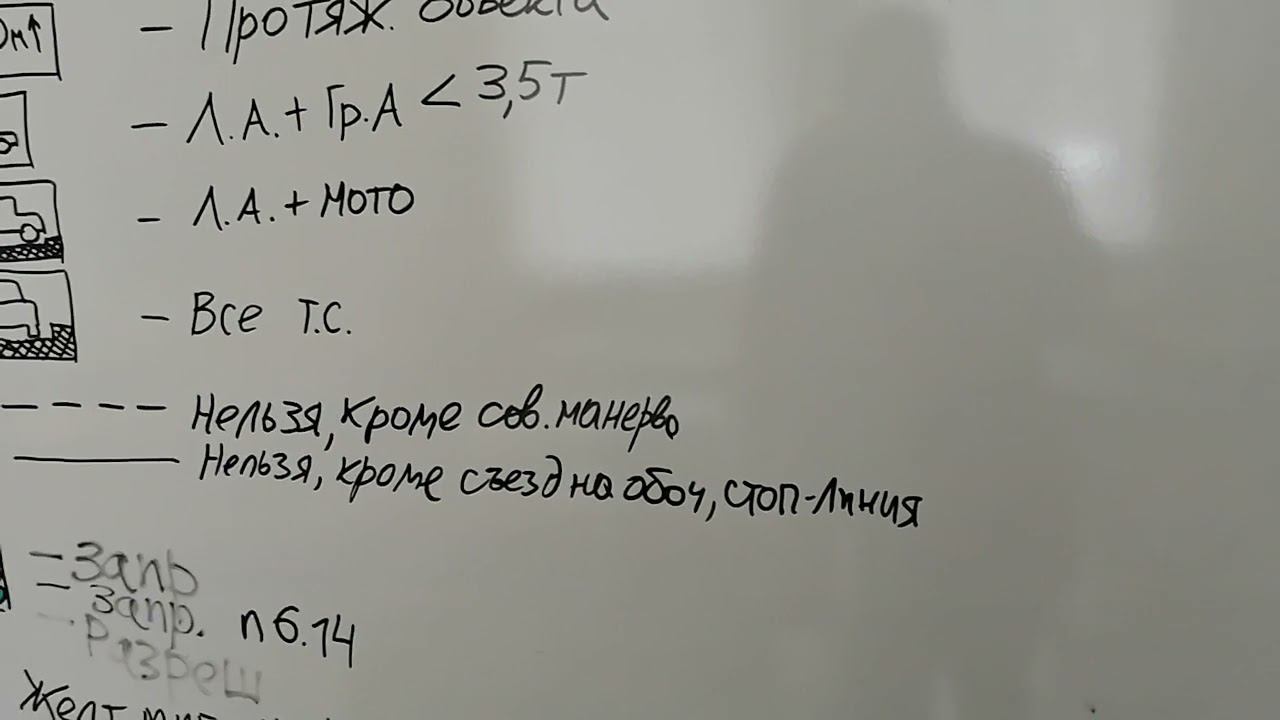 0м↑ – Протяж. объекта
– Л.А.+ Гр.А < 3,5т
– Л.А.+ МОТО
– Все Т.С.
Нельзя, кроме сов. манерво
Нельзя, кроме съезд на обоч, стоп-линия
– Запр
– Запр. п 6.14
Разреш
Желт